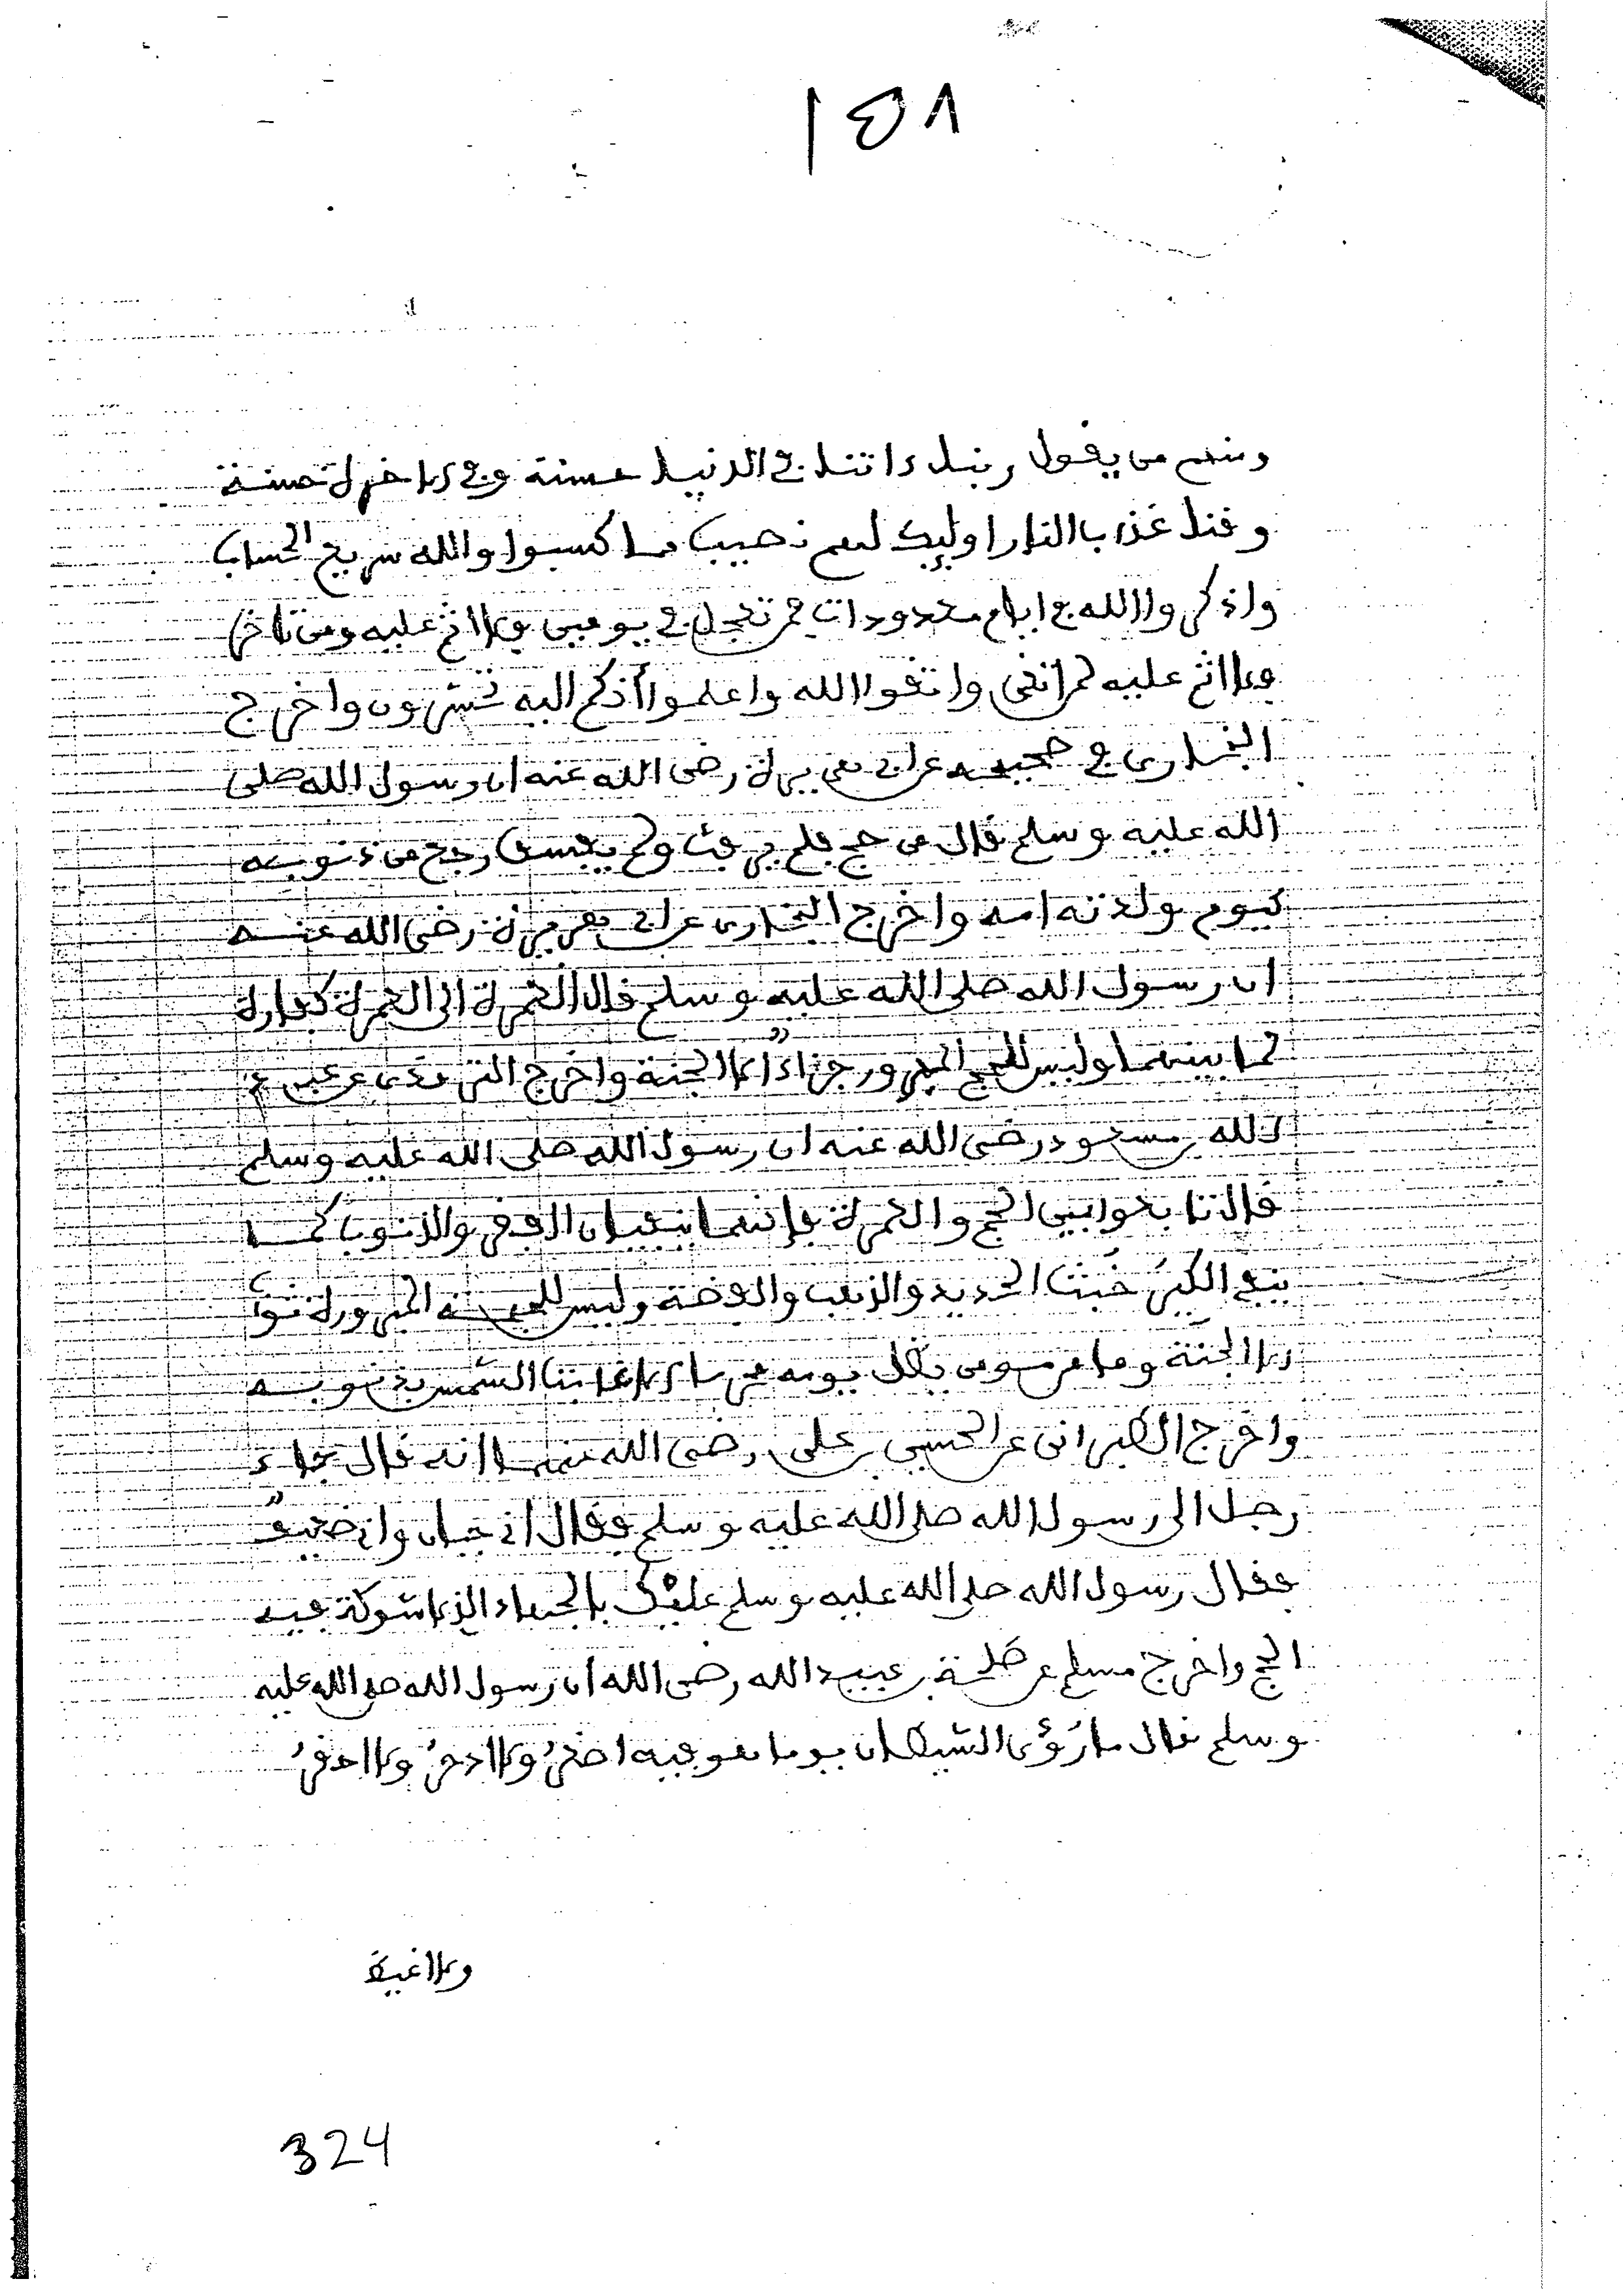 ١٥٨
ومنهم من يقول ربنا ءاتنا في الدنيا حسنة وفي الاخرة حسنة
وقنا عذاب النار اوليك لهم نصيب مما كسبوا والله سريع الحساب
واذكروا الله في ايام معدودات فمن تعجل في يومين فلا اثم عليه ومن تاخر
فلا اثم عليه لمن اتقى واتقوا الله واعلموا أنكم اليه تحشرون واخرج
البخاري في صحيحه عن ابي هريرة رضى الله عنه ان رسول الله صلى
الله عليه وسلم قال من حج فلم يرفث ولم يفسق رجع من ذنوبه
كيوم ولدته امه واخرج البخاري عن ابي هريرة رضى الله عنه
ان رسول الله صلى الله عليه وسلم قال العمرة الى العمرة كفارة
لما بينهما وليس للحج المبرور جزاءٌ الا الجنة واخرج الترمذى عن
الله بن مسعود رضى الله عنه ان رسول الله صلى الله عليه وسلم
قال تابعوا بين الحج والعمرة فإنهما ينفيان الفقر والذنوب كما
ينفي الكير خبث الحديد والذهب والفضة وليس للحجة المبرورة ثواب
الا الجنة وما من مومن يظل يومه محرما الا غابت الشمس بذنوبه
واخرج الطبرانى عن الحسين بن على رضى الله عنهما انه قال جاء
رجل الى رسول الله صلى الله عليه وسلم فقال اني جبان واني ضعيفٌ
فقال رسول الله صلى الله عليه وسلم عليك بالجهاد الذي لا شوكة فيه
الحج واخرج مسلم عن طلحة بن عبيد الله رضى الله ان رسول الله صلى الله عليه
وسلم قال ما رُؤى الشيطان يوما هو فيه اصغرُ ولا ادحرُ ولا احقرُ
ولا اغيظ
324